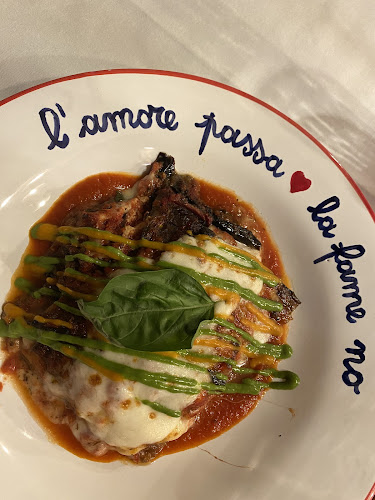 l'amore passa ♥ la fame no